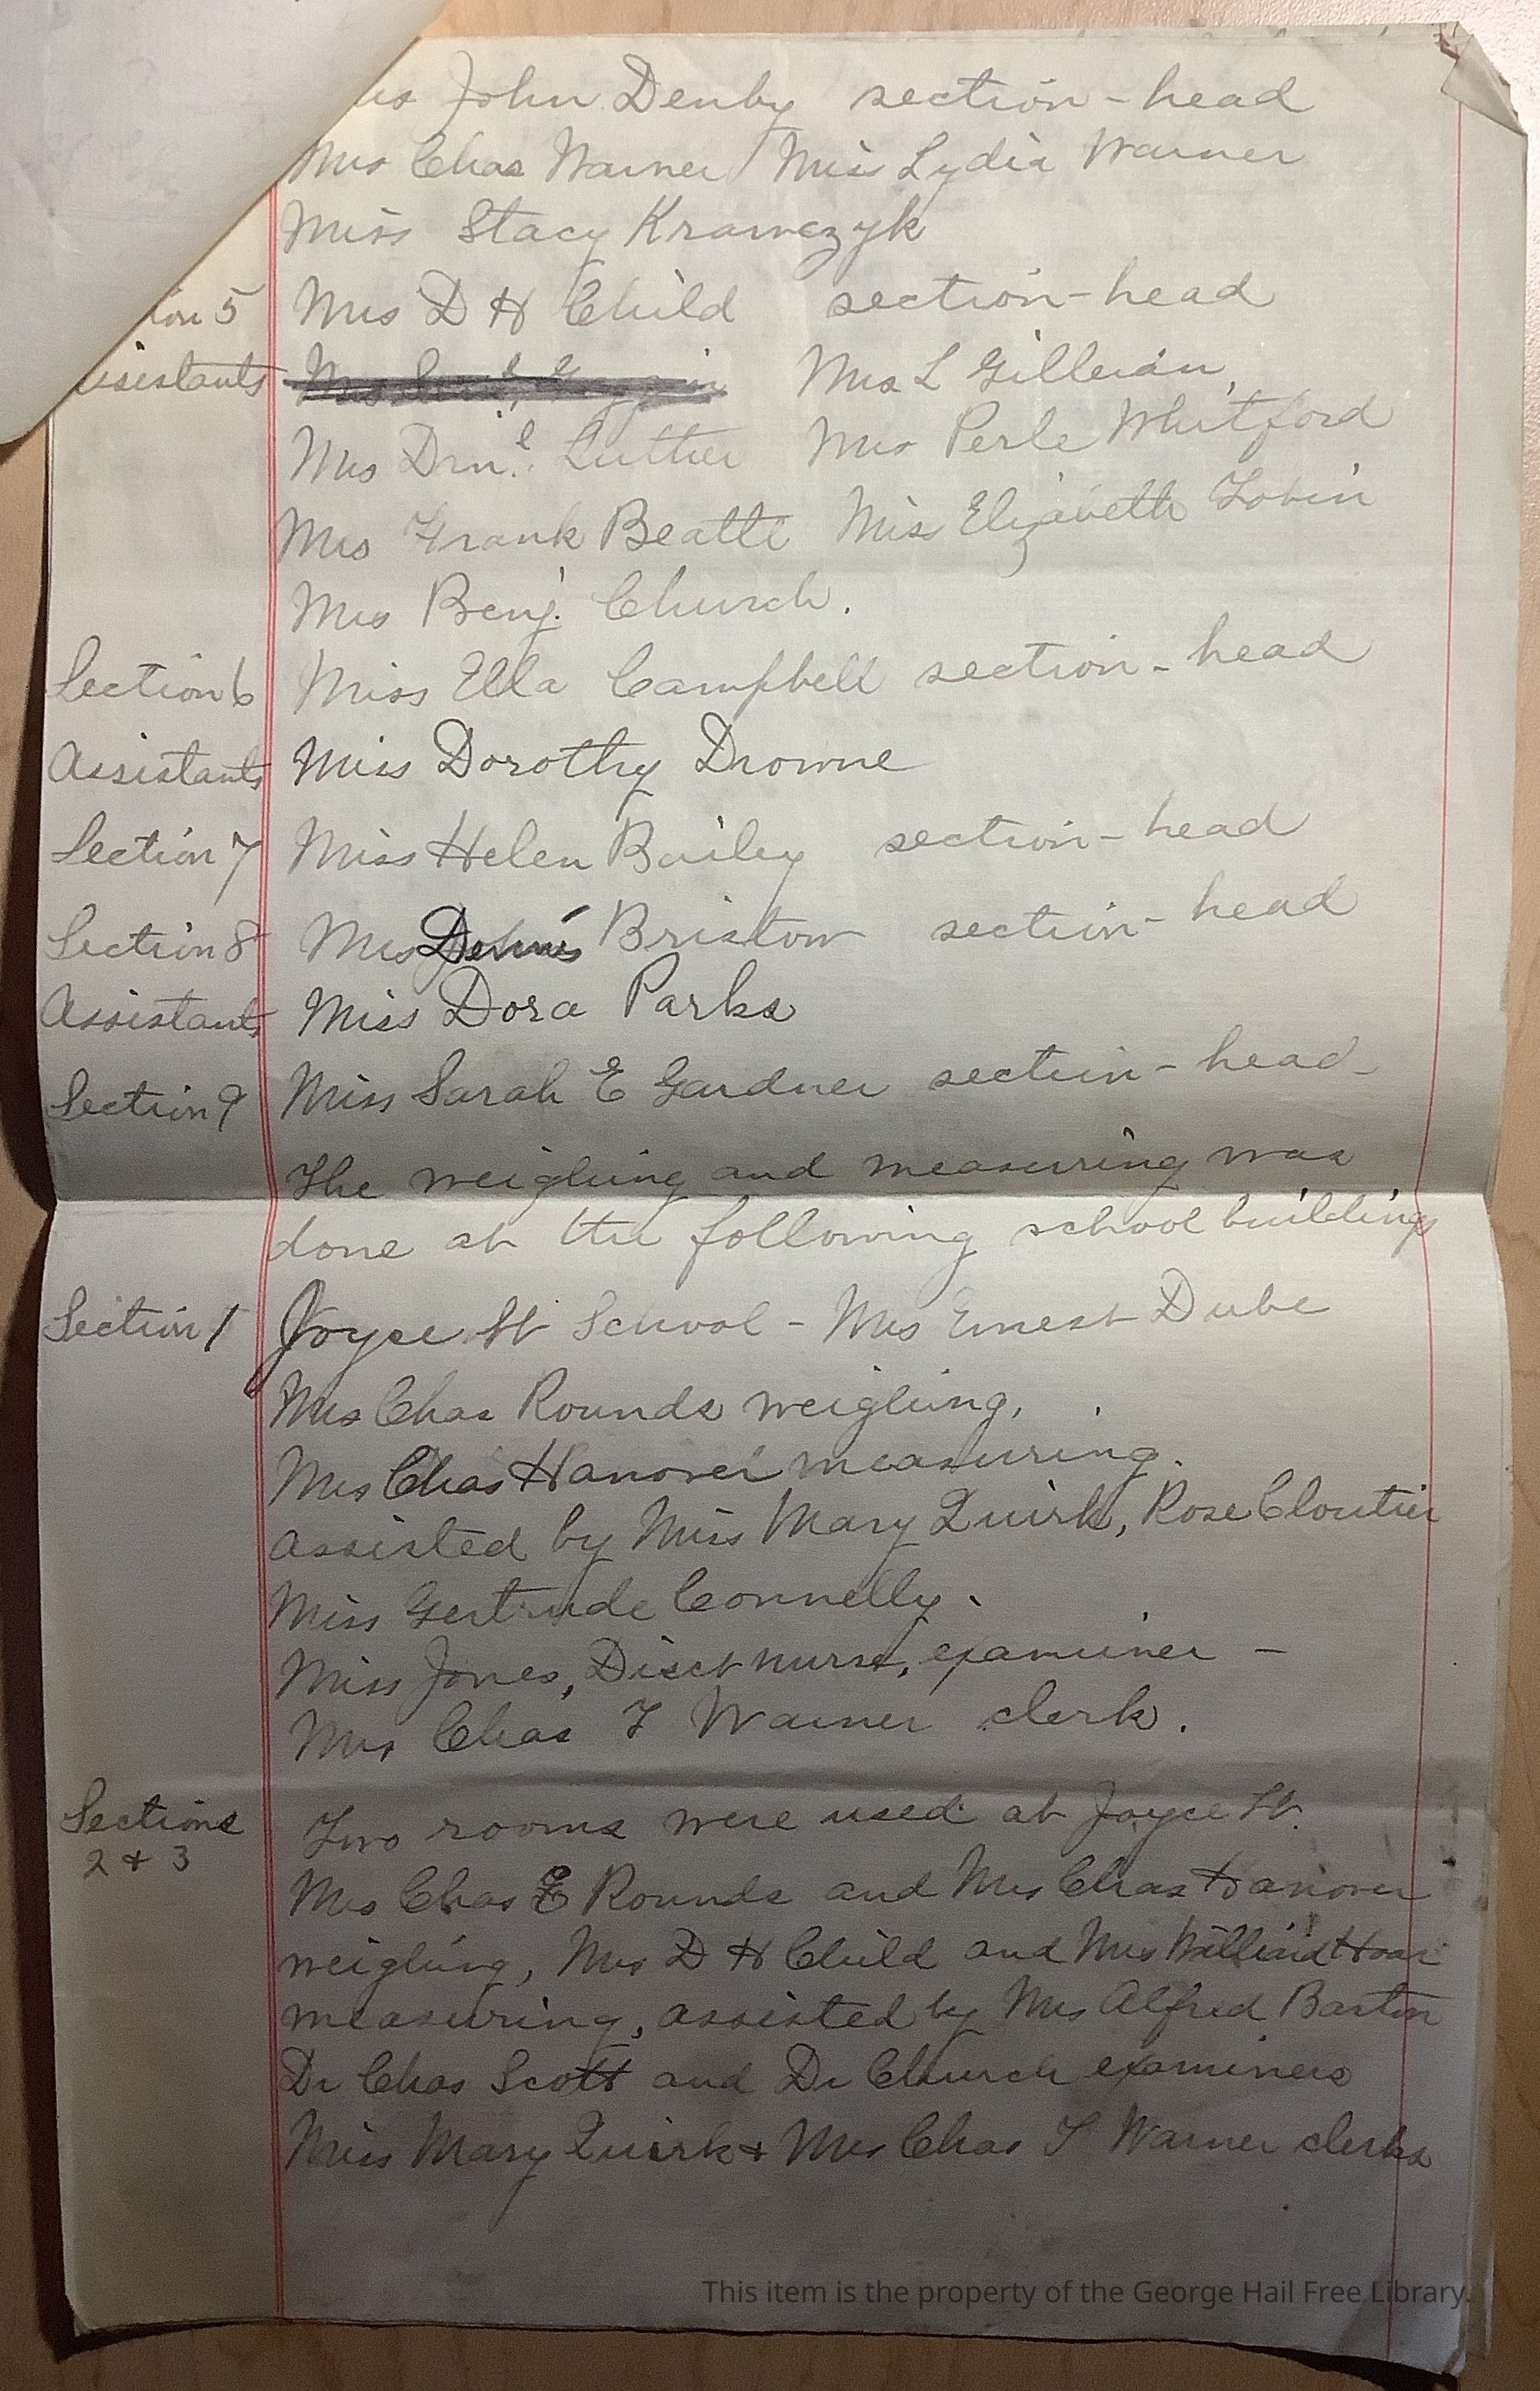 John Denby section-head
Mrs Chas Warner Miss Lydia Warner
Miss Stacy Krawczyk
Section 5 Mrs D H Child section-head
Assistants Mrs L Gilleran,
Mrs Dan'l. Luther Mrs Perle Whitford
Mrs Frank Beattie Miss Elizabeth Tobin
Mrs Benj. Church.
Section 6 Miss Ella Campbell section-head
Assistants Miss Dorothy Drowne
Section 7 Miss Helen Bailey section-head
Section 8 Mrs Bristow section-head
Assistants Miss Dora Parks
Section 9 Miss Sarah E Gardner section-head-
The weighing and measuring was
done at the following school buildings
Section 1 Joyce St School - Mrs Ernest Dube
Mrs Chas Rounds weighing,
Mrs Chas Hanover measuring.
assisted by Miss Mary Quirk, Rose Cloutier
Miss Gertrude Connelly.
Miss Jones, Disct nurse, examiner -
Mrs Chas T Warner clerk.
Sections 2 + 3 Two rooms were used at Joyce St.
Mrs Chas E Rounds and Mrs Chas Hanover
weighing, Mrs D H Child and Mrs
measuring, assisted by Mrs Alfred Barton
Dr Chas Scott and Dr Church examiners
Miss Mary Quirk + Mrs Chas T Warner clerks
This item is the property of the George Hail Free Library.